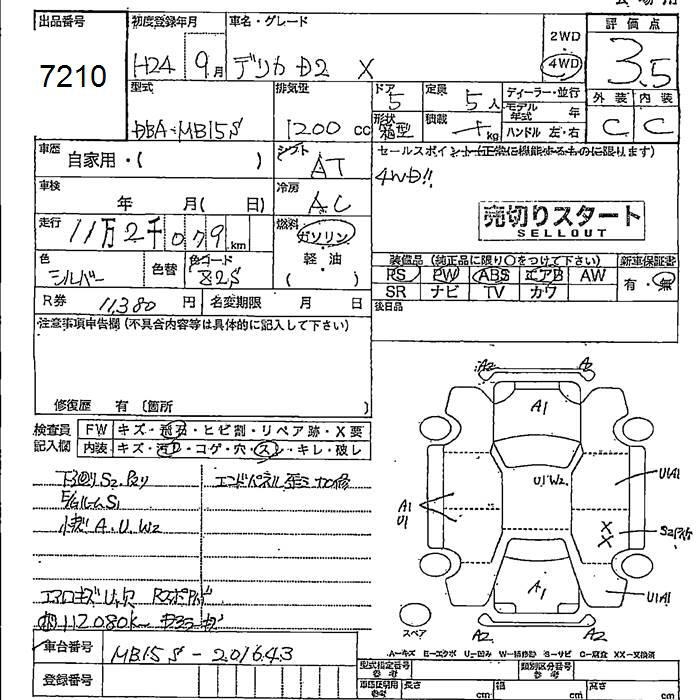 出品番号
7210
初度登録年月
H24 9月
車名・グレード
デリカ D2 X
2WD
4WD
評価点
3.5
外装 内装
C C
型式
DBA-MB15S
排気量
1200 cc
ドア
5
定員
5人
形状
箱型
積載
kg
ディーラー・並行
モデル年式 年
ハンドル 左・右
車歴
自家用・( )
シフト
AT
セールスポイント(正常に機能するものに限ります)
4WD!!
車検
年 月( 日)
冷房
AC
売切りスタート
SELLOUT
走行
11万2千079km
燃料
ガソリン
軽・油
( )
色
シルバー
色替
色コード
82S
装備品(純正品に限り○をつけて下さい)
新車保証書
PS PW ABS エアB AW
SR ナビ TV カワ
有・無
R券
11,380円
名変期限 月 日
後日品
注意事項申告欄(不具合内容等は具体的に記入して下さい)
修復歴 有〔箇所 〕
検査員記入欄
FW キズ・飛石・ヒビ割・リペア跡・X要
内装 キズ・汚れ・コゲ・穴・スレ・キレ・破レ
下回りS2.
S1
A.U.W2
エンドパネル
エアロキズ
112080k
車台番号
MB15S-201643
登録番号
A2
A2
A1
U1W2
U1A1
A1
U1
X
X
S2
A1
U1A1
スペア
A2
A2
A-キズ E-エクボ U-凹み W-補修跡 S-サビ C-腐食 XX-交換済
型式指定番号
参考
類別区分番号
参考
車体使用欄
参考
長さ cm
幅 cm
高さ cm